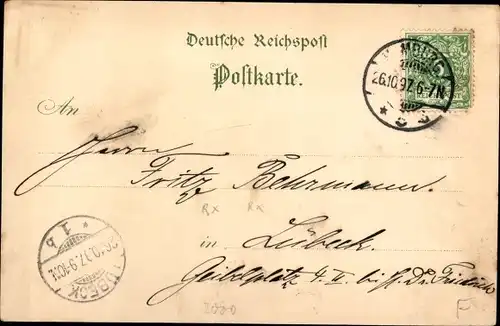 Deutsche Reichspost
Postkarte.
HAMBURG
26.10.97.6-7N.
An
Herrn
Fritz Behrmann.
Rx Rx
in Lübeck.
Geibelplatz 4. II. bei H. Dr.
LÜBECK
26.10.97.9-10N.
1 b
F